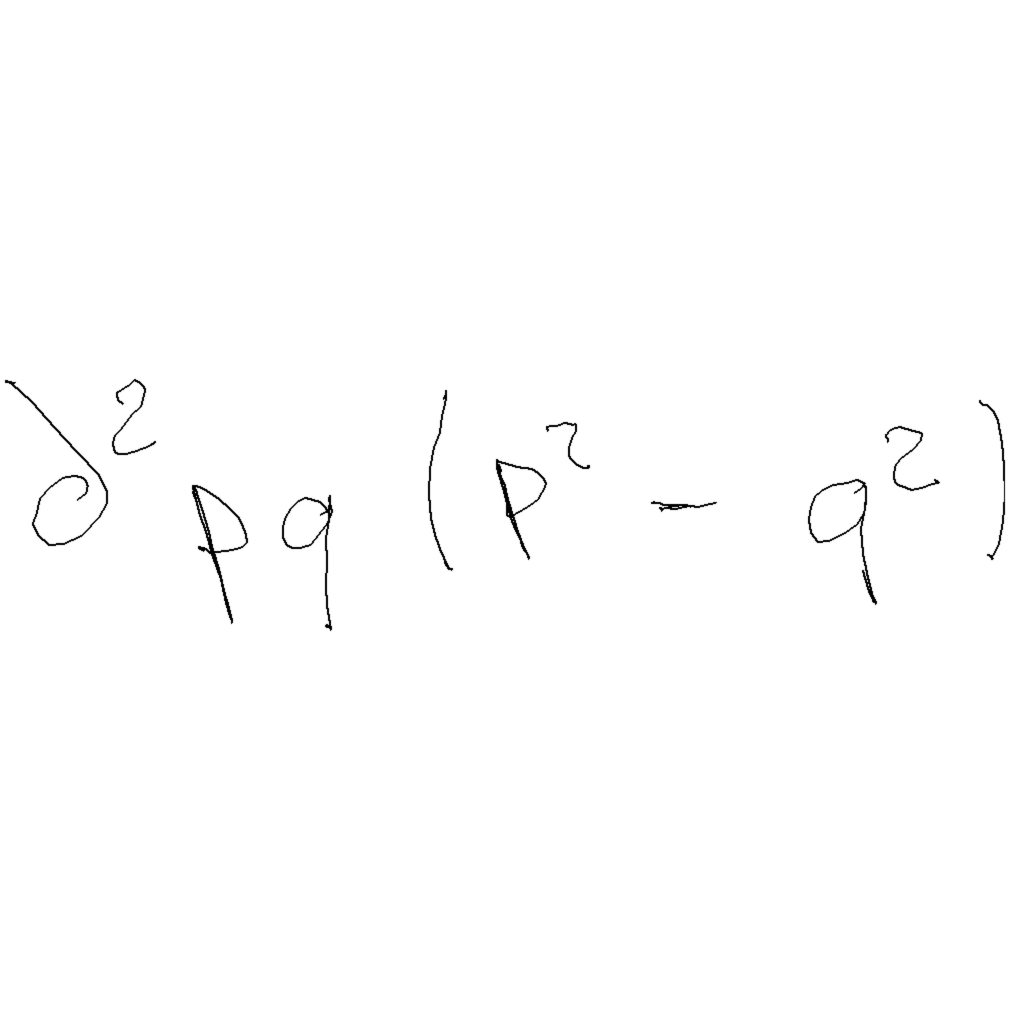 ∂²pq(p² − q²)